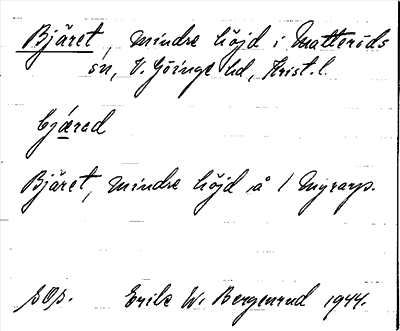 Bjäret, mindre höjd i Matteröds
sn, V. Göinge hd, Krist. l.
bjæred
Bjäret, mindre höjd å 1 Myrarp.
SOp. Erik W. Bergenrud 1944.